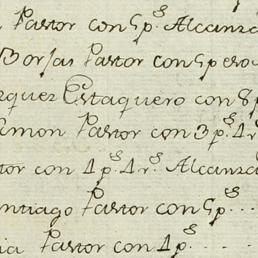 Pastor con 5p.s Alcanza
Borjas Pastor con 5peso
zquez Estaquero con 8p
emon Pastor con 3p.s 4r
tor con 1p.s 4r.s Alcanza
ntiago Pastor con 5p...
ia Pastor con 1p.s